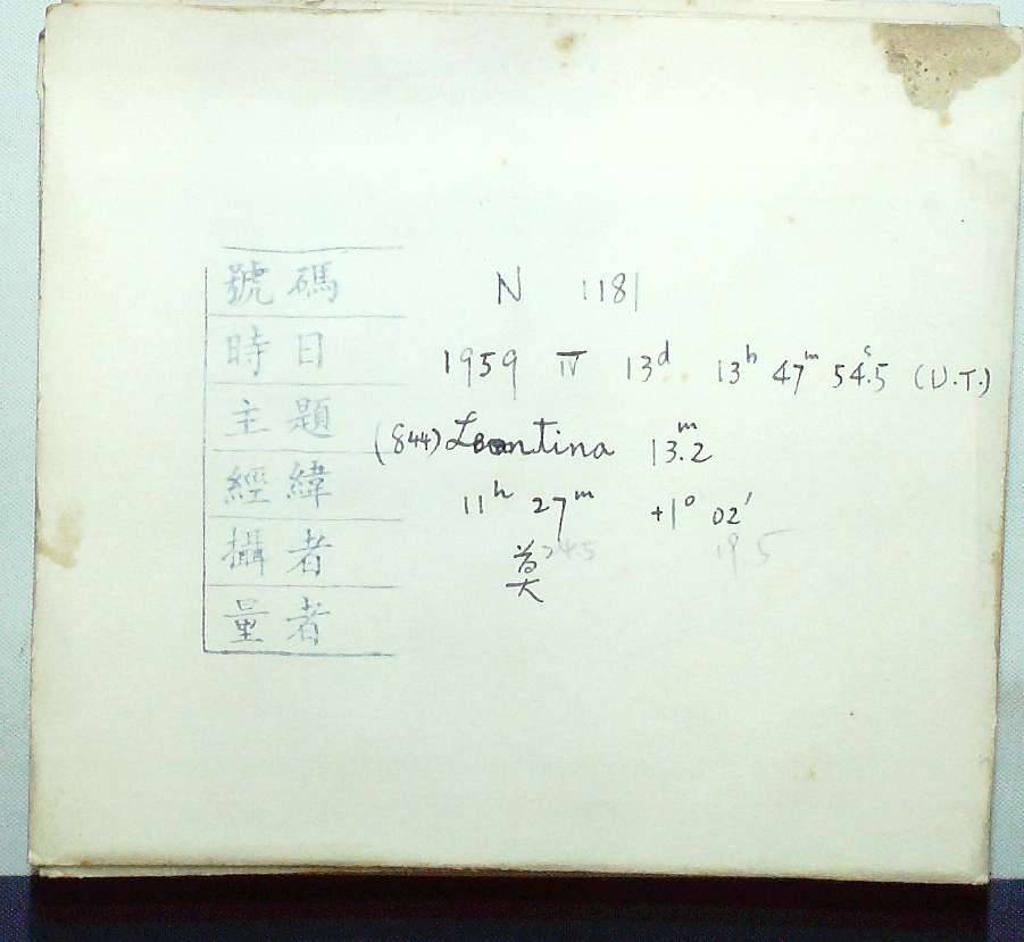 號碼 N 1181
時日 1959 IV 13d 13h 47m 54s.5 (U.T.)
主題 (844) Leontina 13.2m
經緯 11h 27m +1° 02′
攝者
量者